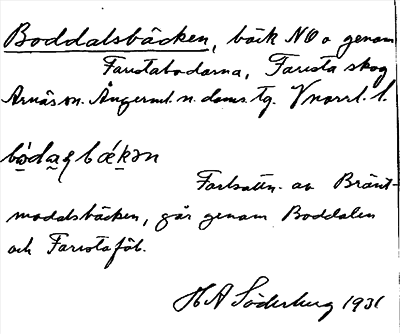 Boddalsbäcken, bäck NO o genom
Farstabodarna, Farsta skog
Arnäs sn. Ångerml. n. doms. tg. Vnorrl. l.
Fortsättn. av Bränt-
moddsbäcken, går genom Boddalen
och Farstafäb.
H A Söderberg 1931